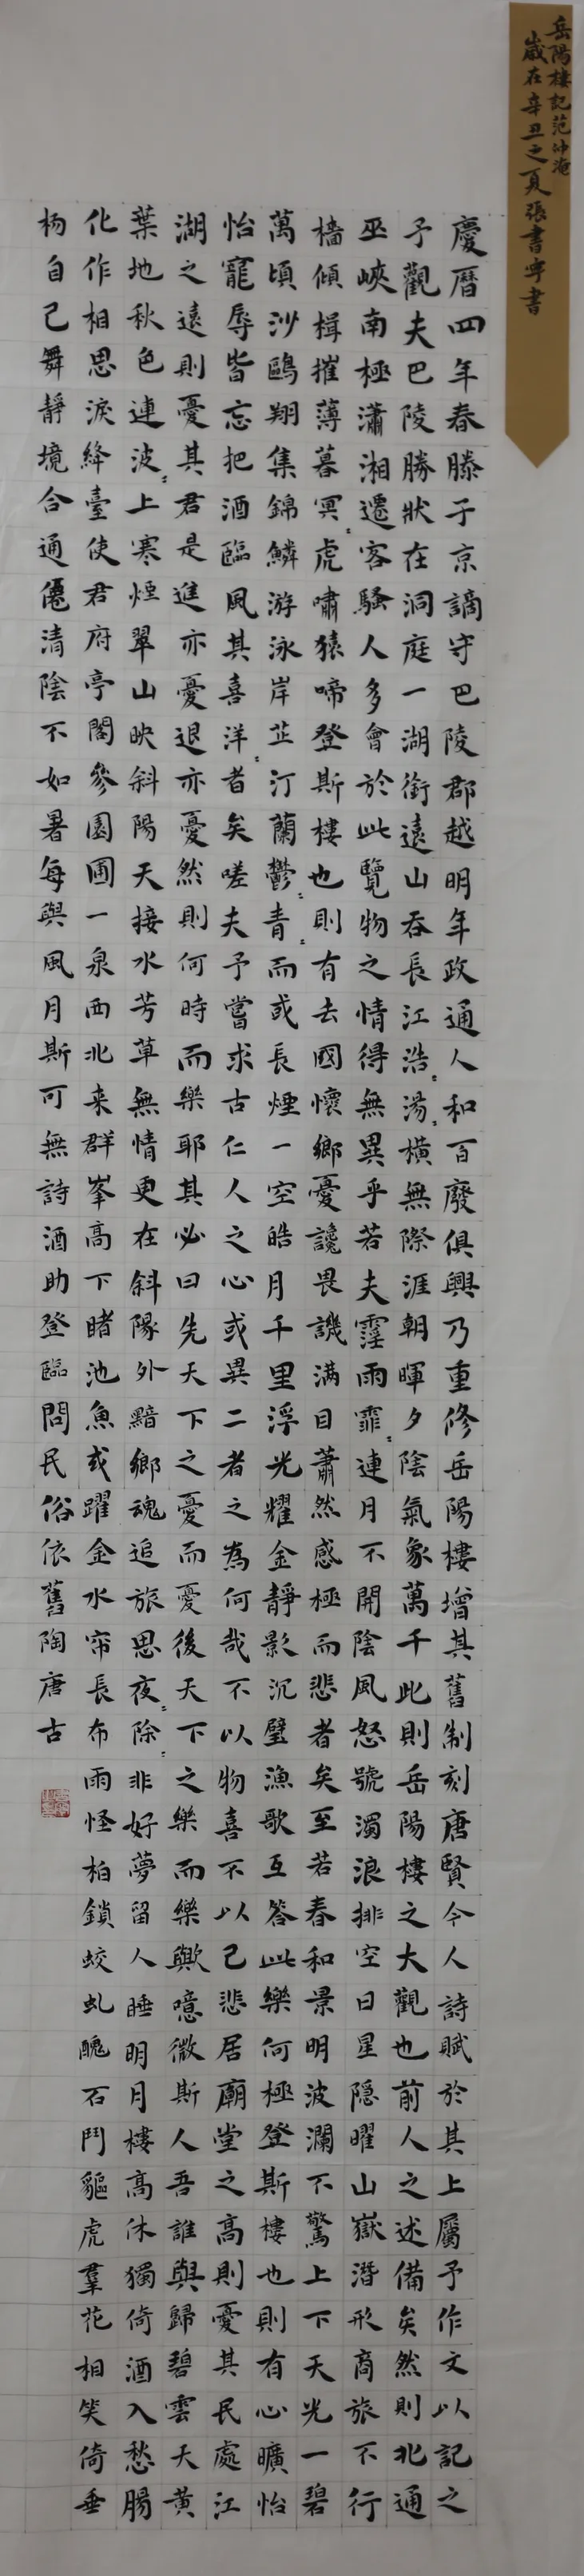 岳陽樓記范仲淹
歲在辛丑之夏張書寧書
慶暦四年春滕子京謫守巴陵郡越明年政通人和百廢俱興乃重修岳陽樓增其舊制刻唐賢今人詩賦於其上屬予作文以記之
予觀夫巴陵勝狀在洞庭一湖銜遠山吞長江浩〻湯〻橫無際涯朝暉夕陰氣象萬千此則岳陽樓之大觀也前人之述備矣然則北通
巫峽南極瀟湘遷客騷人多會於此覽物之情得無異乎若夫霪雨霏〻連月不開陰風怒號濁浪排空日星隱曜山嶽潛形商旅不行
檣傾楫摧薄暮冥〻虎嘯猿啼登斯樓也則有去國懷鄉憂讒畏譏滿目蕭然感極而悲者矣至若春和景明波瀾不驚上下天光一碧
萬頃沙鷗翔集錦鱗游泳岸芷汀蘭鬱〻青〻而或長煙一空皓月千里浮光耀金靜影沉璧漁歌互答此樂何極登斯樓也則有心曠怡
怡寵辱皆忘把酒臨風其喜洋〻者矣嗟夫予嘗求古仁人之心或異二者之為何哉不以物喜不以己悲居廟堂之高則憂其民處江
湖之遠則憂其君是進亦憂退亦憂然則何時而樂耶其必曰先天下之憂而憂後天下之樂而樂歟噫微斯人吾誰與歸碧雲天黃
葉地秋色連波〻上寒煙翠山映斜陽天接水芳草無情更在斜陽外黯鄉魂追旅思夜〻除非好夢留人睡明月樓高休獨倚酒入愁腸
化作相思淚絳臺使君府亭閣參園圃一泉西北来群峯高下睹池魚或躍金水帘長布雨怪柏鎖蛟虬醜石鬥貙虎羣花相笑倚垂
楊自己舞靜境合通僊清陰不如暑每與風月斯可無詩酒助登臨問民俗依舊陶唐古